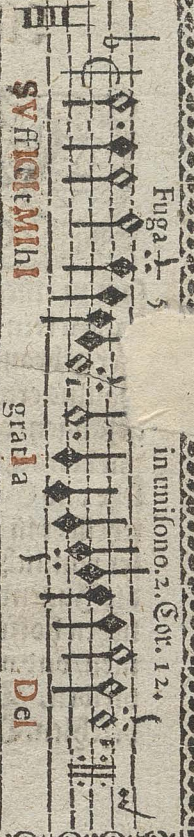 Fuga 5 in unisono. 2. Cor. 12.
SVffICIt MIhI gratIa DeI